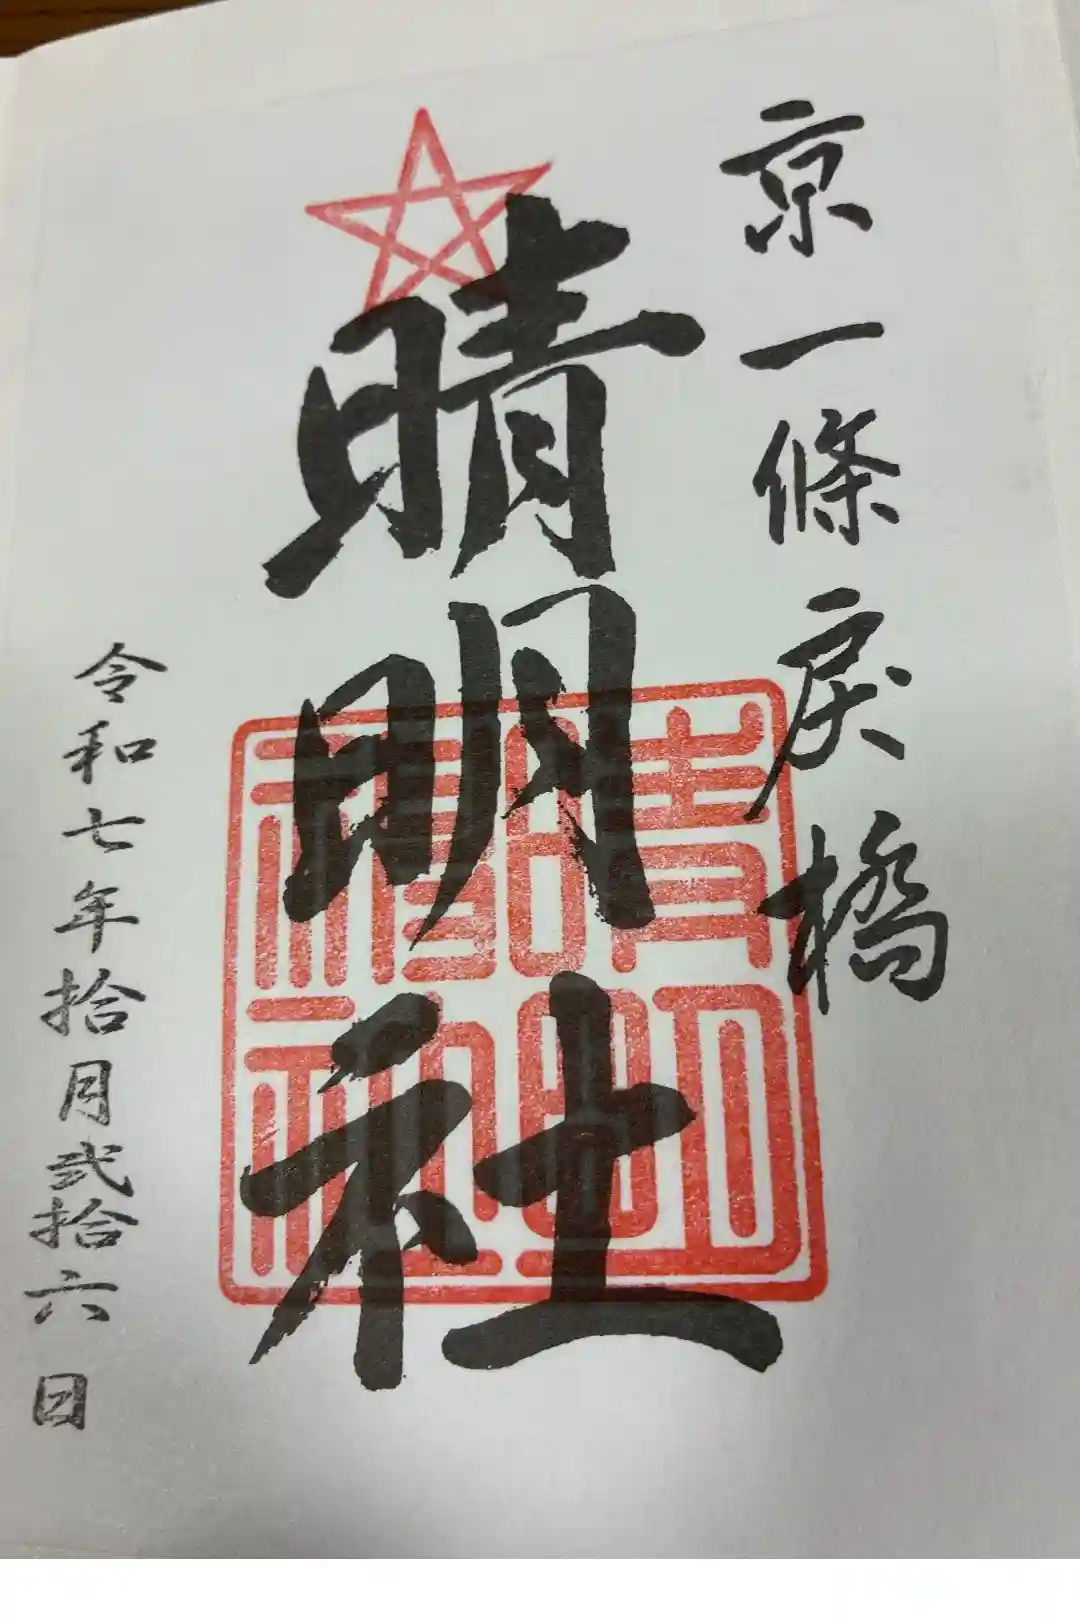 京一條戻橋
晴明社
晴明神社
令和七年拾月弐拾六日